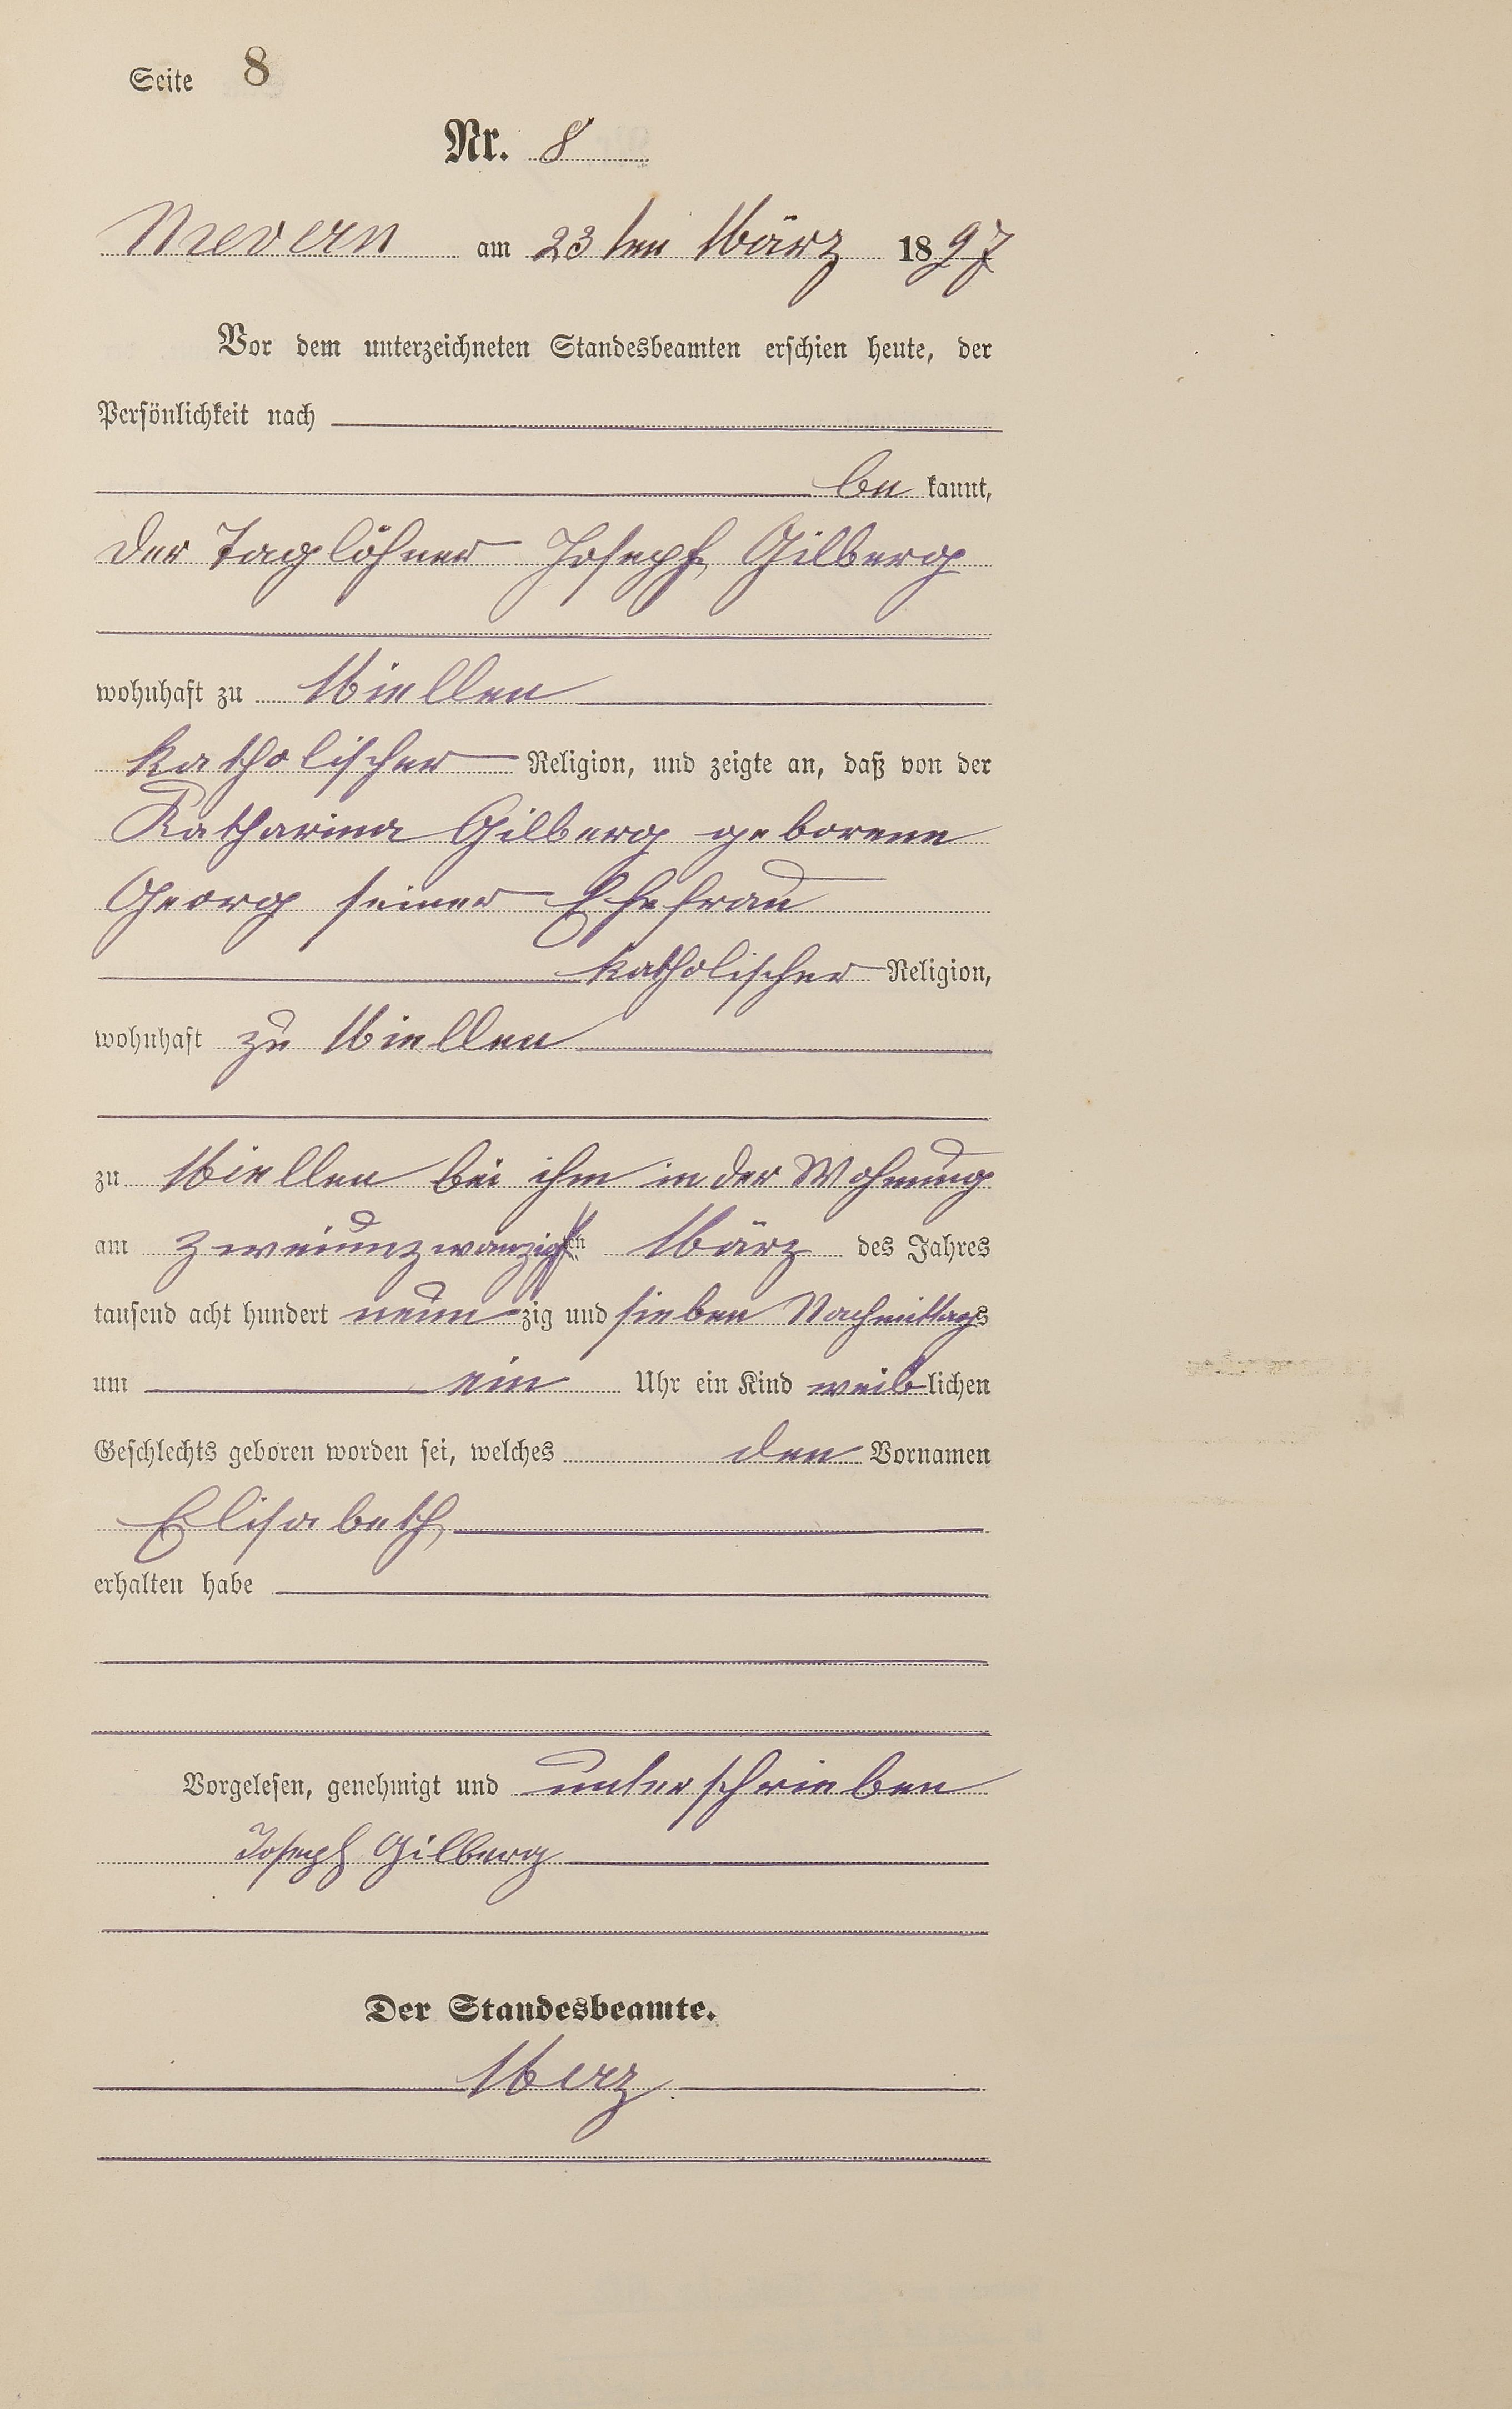 Seite 8
Nr. 8
Nievern am 23ten März 1897
Vor dem unterzeichneten Standesbeamten erschien heute, der
Persönlichkeit nach
be kannt,
der Taglöhner Joseph Gilberg
wohnhaft zu Miellen
katholischer Religion, und zeigte an, daß von der
Katharina Gilberg geborene
Georg seiner Ehefrau
katholischer Religion,
wohnhaft zu Miellen
zu Miellen bei ihm in der Wohnung
am zweiunzwanzigsten März des Jahres
tausend acht hundert neun zig und sieben Nachmittags
um ein Uhr ein Kind weiblichen
Geschlechts geboren worden sei, welches den Vornamen
Elisabeth
erhalten habe
Vorgelesen, genehmigt und unterschrieben
Joseph Gilberg
Der Standesbeamte.
Merz